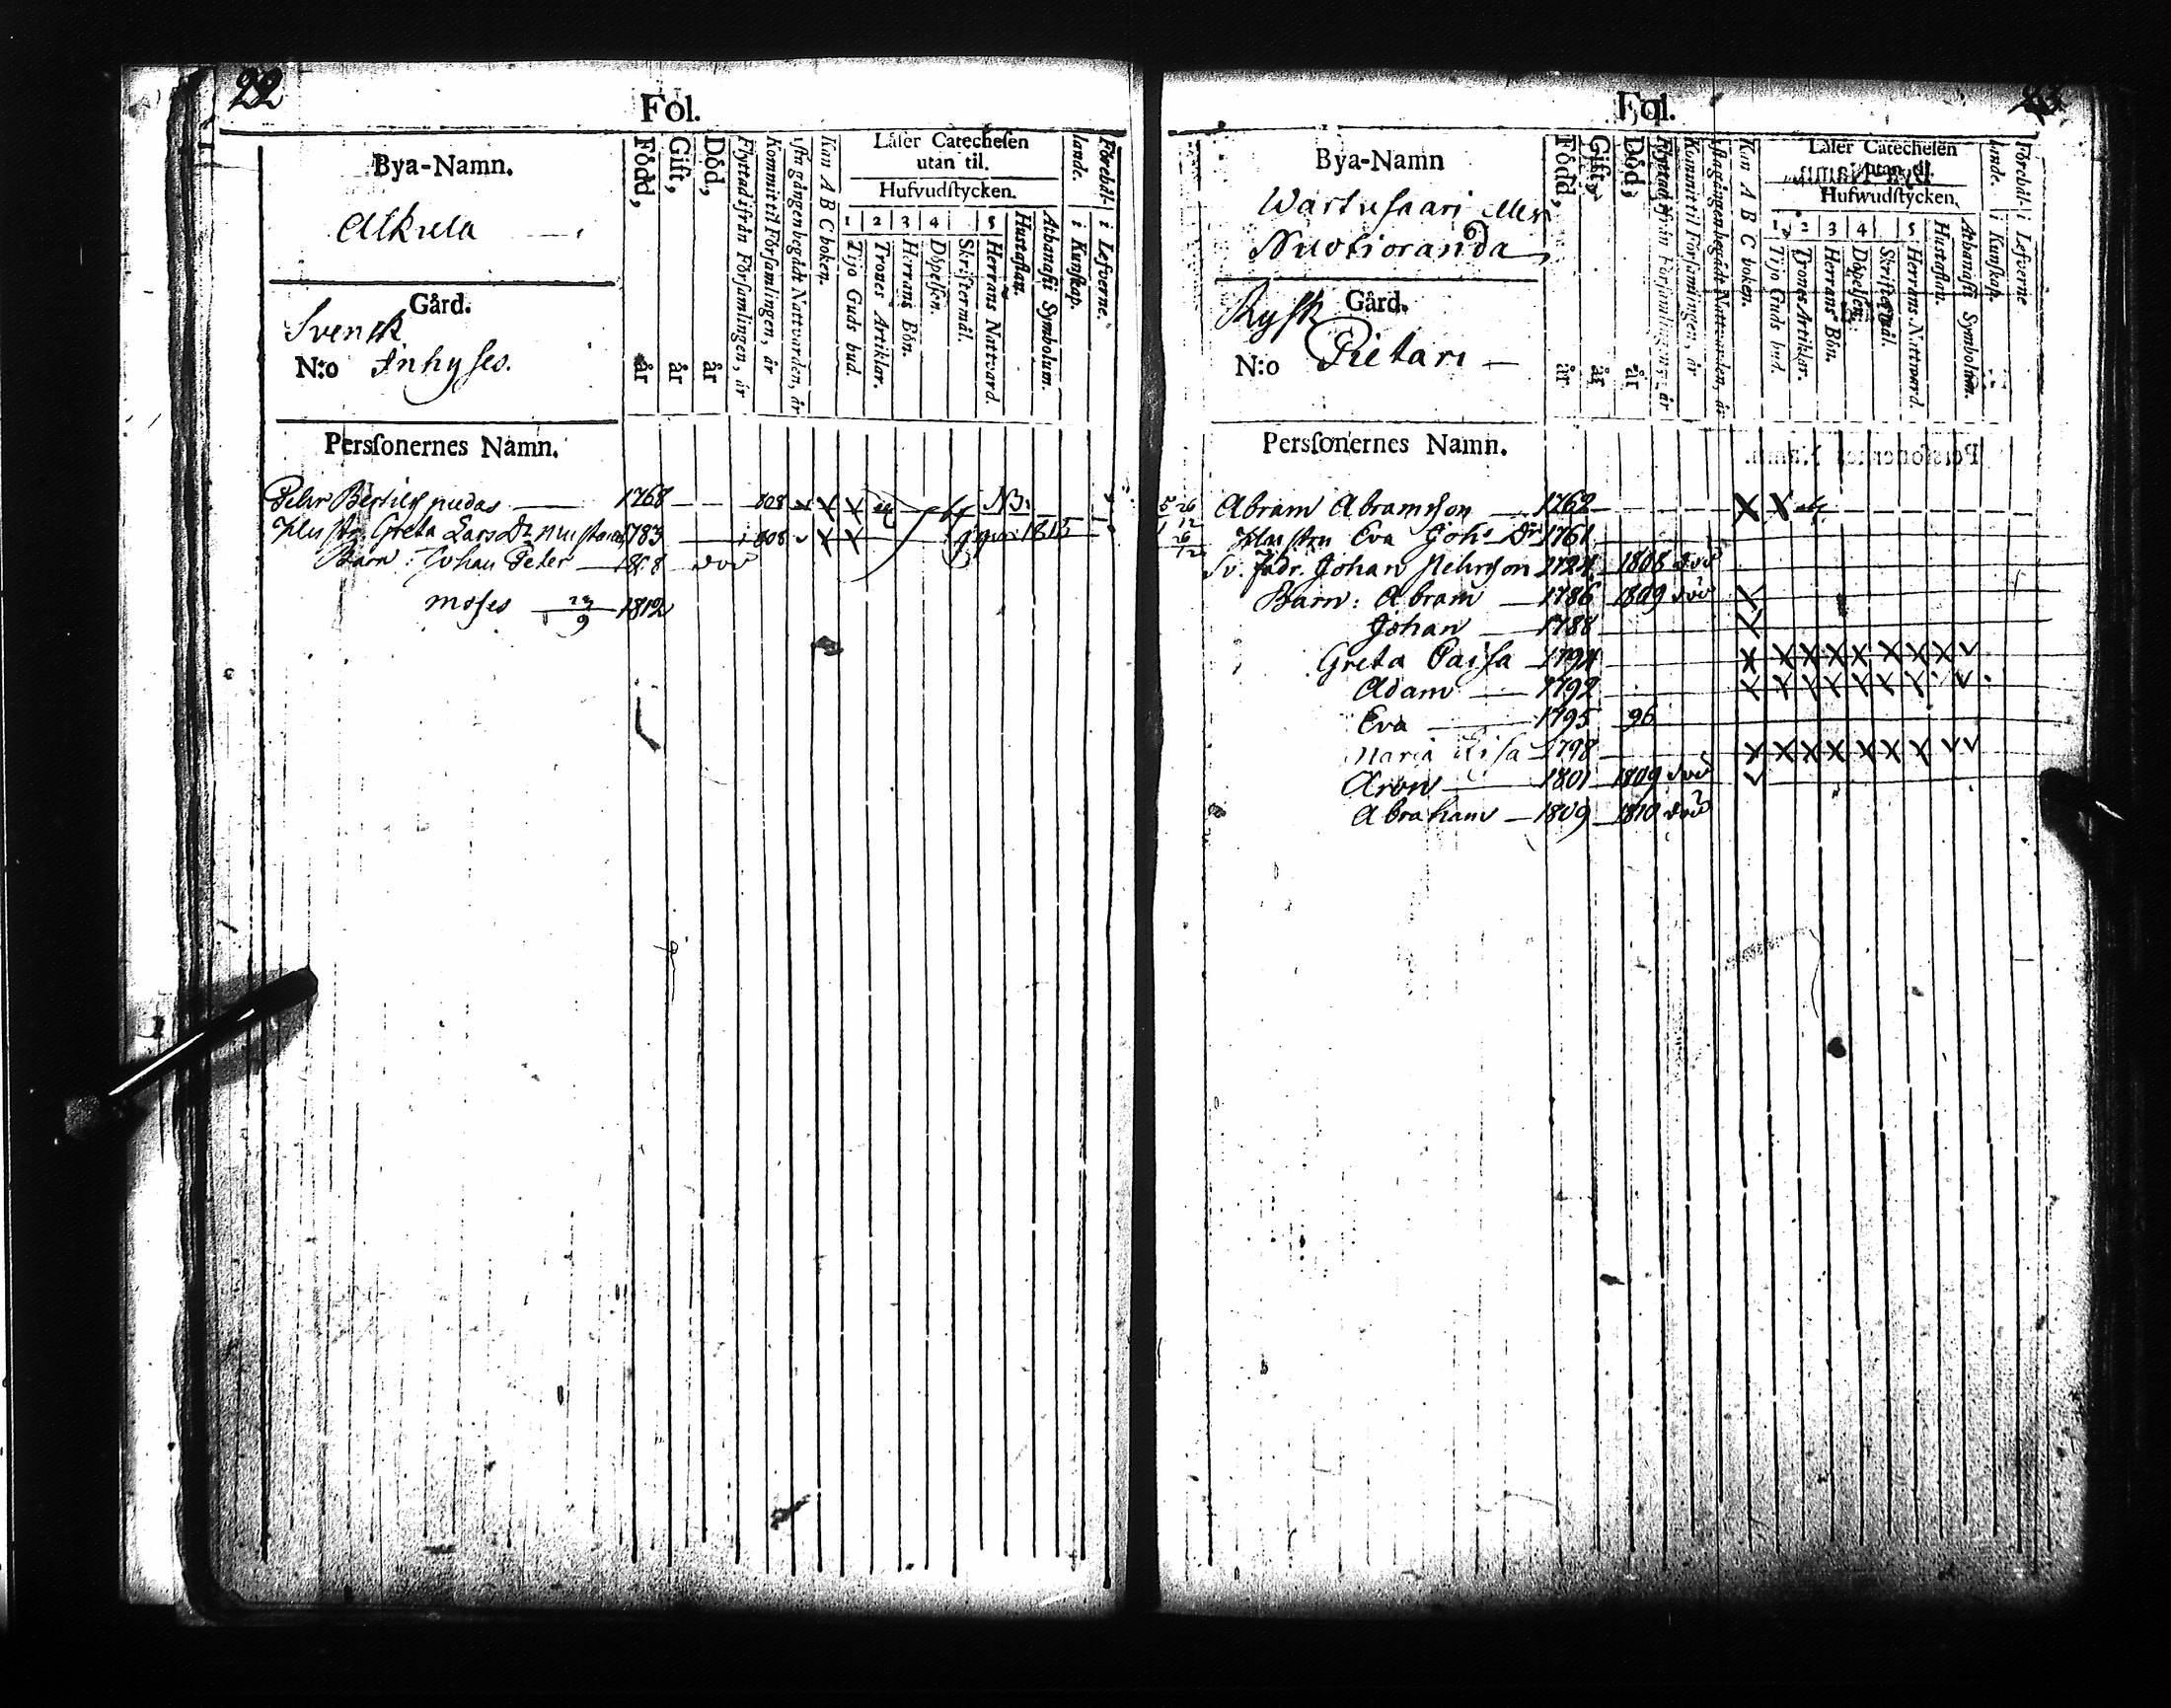 22
Fol.
Bya-Namn.
Alkula
Gård.
Svensk
N:o Inhyses.
Född, år
Gift, år
Död, år
Flyttad ifrån Församlingen, år
Kommit til Församlingen, år
1sta gången begådt Nattvarden, år
Kan A B C boken.
Låser Catechesen
utan til.
Hufvudstycken.
1 2 3 4 5
Tijo Guds bud.
Trones Artiklar.
Herrans Bön.
Döpelsen.
Skriftermål.
Herrans Nattvard.
Hustaflan.
Athanasii Symbolum.
Förebål-
lande.
i Kunskap.
i Lefverne.
Persſonernes Namn.
Pehr 1768 — — 808 x X X
Hustr. Greta Lars Dr 1783 — 808 X X 1815
Barn: Johan Peter — 1808 död
Moses 1812
Fol.
Bya-Namn
Wartusaari eller
Nuotioranda
Gård.
Rysk
N:o Pietari —
Född, år
Gift, år
Död, år
Flyttad ifrån Församlingen, år
Kommit til Församlingen, år
1sta gången begådt Nattvarden, år
Kan A B C boken.
Låser Catechesen
utan til.
Hufwudstycken.
1 2 3 4 5
Tijo Guds bud.
Trones Artiklar.
Herrans Bön.
Döpelsen.
Skriftermål.
Herrans Nattward.
Hustaflan.
Athanasii Symbolum.
Förebål-
lande.
i Kunskap.
i Lefverne
Persſonernes Namn.
Abram Abramsson 1762 X X
Hustru Eva Joh: Dr 1761
Sv. fadr. Johan 1724 1808 död
Barn: Abram — 1786 1809 död X
Johan — 1788 X
Greta Caisa — 1794 X X X X X X X X V
Adam — 1792 X X X X X X X V
Eva — 1795 96
Maria Lisa — 1798 X X X X X X X V V
Aron — 1801 1809 död V
Abraham — 1809 1810 död